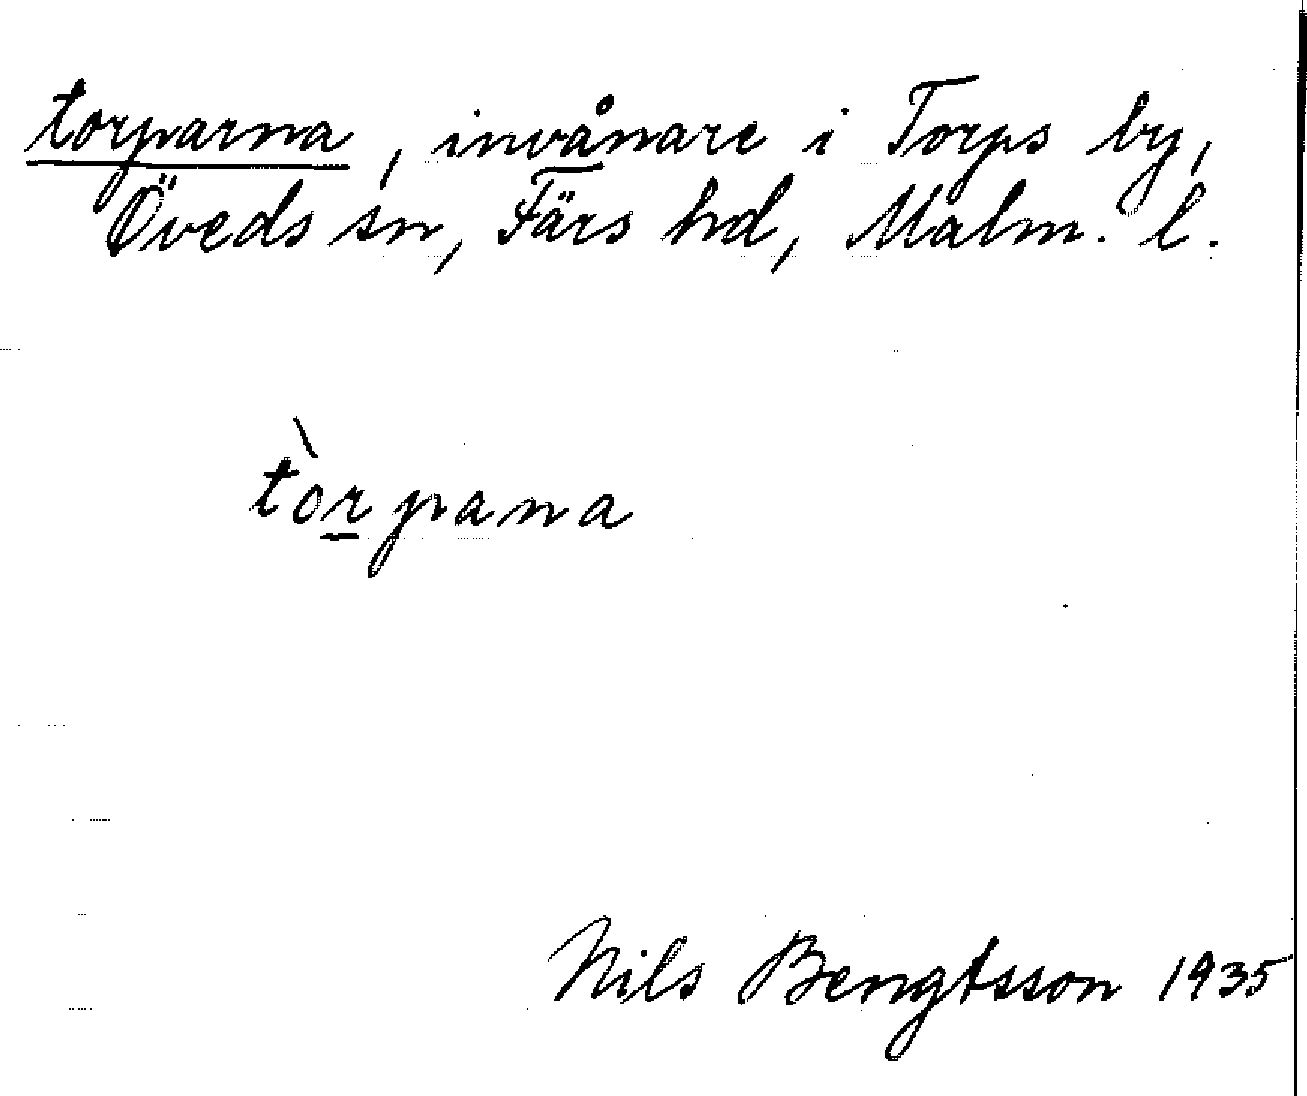 torparna, invånare i Torps by,
Öveds sn, Färs hd, Malm. l.
tòrpana
Nils Bengtsson 1935